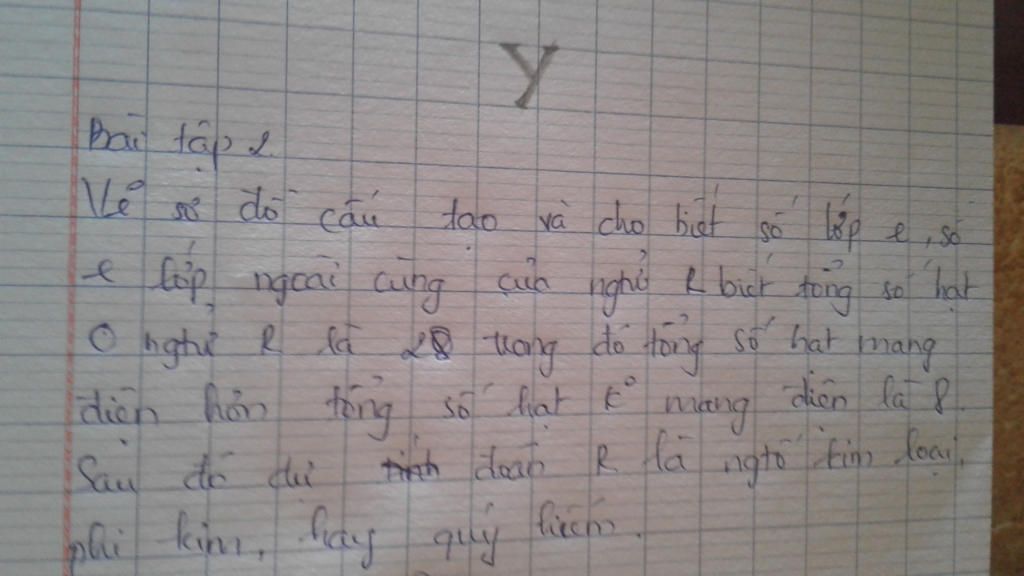 Y
Bài tập 2
Vẽ sơ đồ cấu tạo và cho biết số lớp e, số
e lớp ngoài cùng của nghử R biết tổng số hạt
Ở nghử R là 28 trong đó tổng số hạt mang
điện hơn tổng số hạt k° mang điện là 8.
Sau đó dự đoán R là ngtố kim loại,
phi kim, hay quý hiếm.